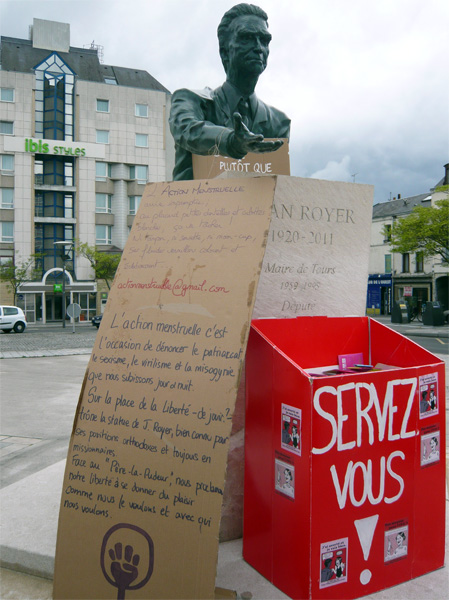 ibis STYLES
PLUTÔT QUE
ACTION MENSTRUELLE
AN ROYER
1920-2011
Maire de Tours
1959-1995
Député
actionmenstruelle@gmail.com
L'action menstruelle c'est
l'occasion de dénoncer le patriarcat
le sexisme, le virilisme et la misogynie
que nous subissons jour et nuit.
Sur la place de la Liberté - de jouir?
trône la statue de J. Royer, bien connu pour
ses positions orthodoxes et toujours en
missionnaire.
Face au "Père-la-Pudeur", nous proclamons
notre liberté à se donner du plaisir
comme nous le voulons et avec qui
nous voulons.
SERVEZ
VOUS
!